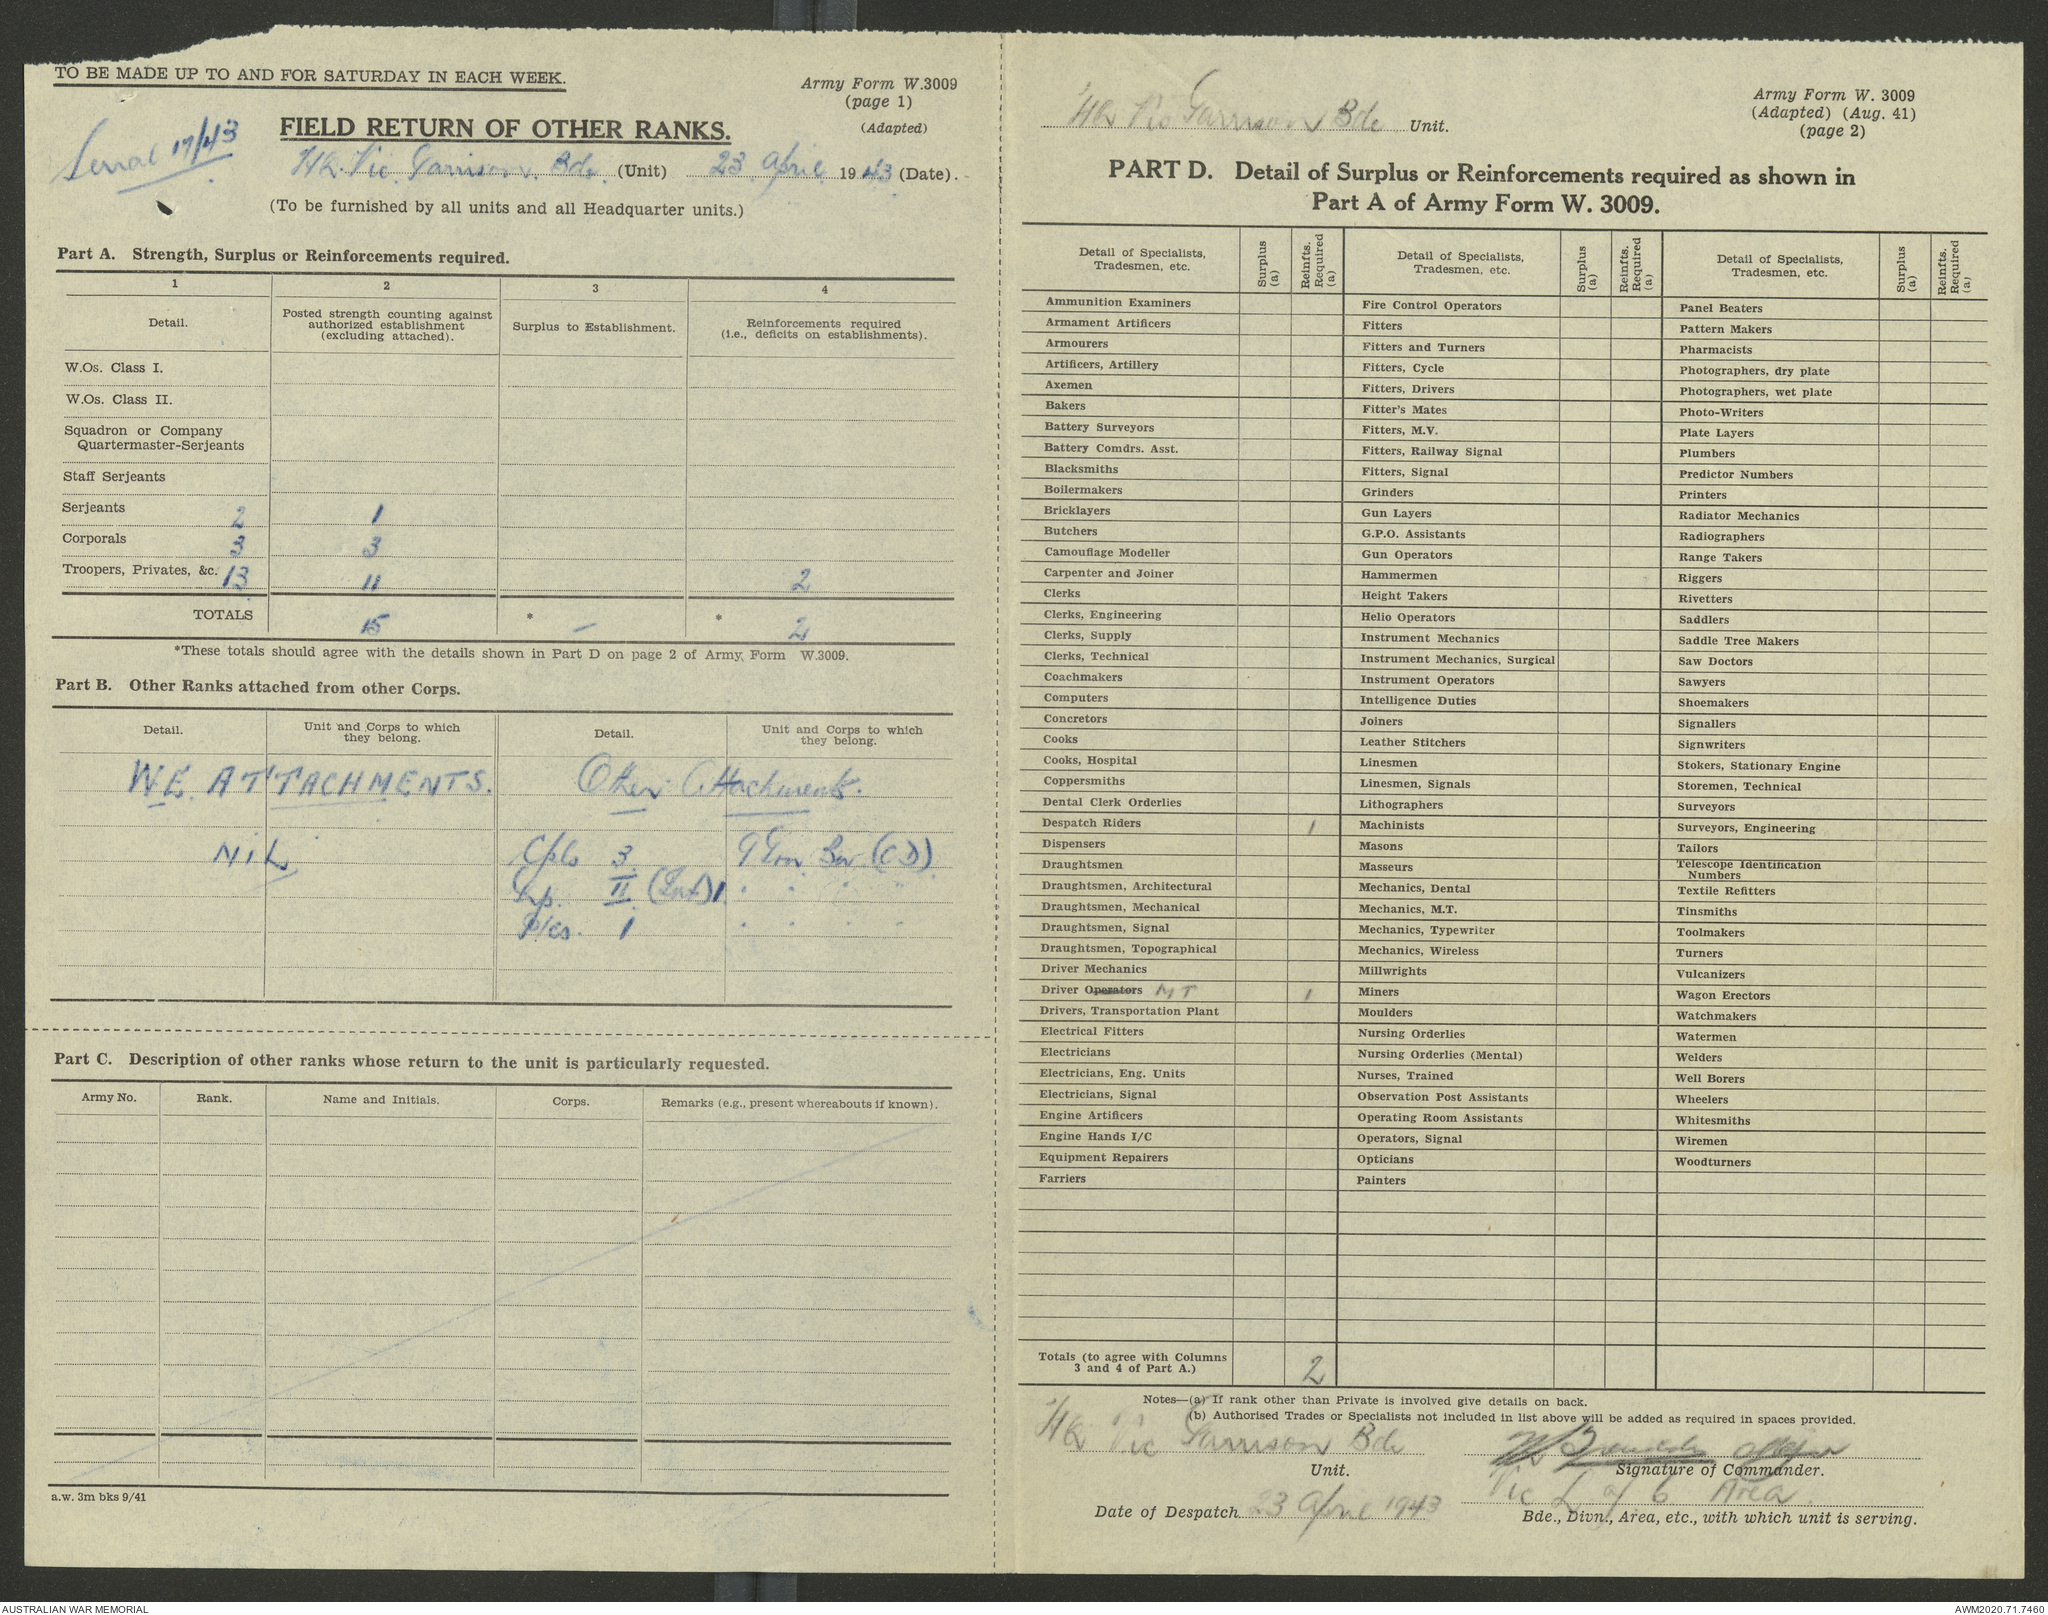 TO BE MADE UP TO AND FOR SATURDAY IN EACH WEEK.
Army Form W.3009
(page 1)
(Adapted)
Serial 17/43
FIELD RETURN OF OTHER RANKS.
HQ. Vic. Garrison. Bde. (Unit) 23 April 1943 (Date).
(To be furnished by all units and all Headquarter units.)
Part A. Strength, Surplus or Reinforcements required.
1 2 3 4
Detail. Posted strength counting against authorized establishment (excluding attached). Surplus to Establishment. Reinforcements required (i.e., deficits on establishments).
W.Os. Class I.
W.Os. Class II.
Squadron or Company
Quartermaster-Serjeants
Staff Serjeants
Serjeants 2 1
Corporals 3 3
Troopers, Privates, &c. 13 11 2
TOTALS 15 * — * 2
*These totals should agree with the details shown in Part D on page 2 of Army Form W.3009.
Part B. Other Ranks attached from other Corps.
Detail. Unit and Corps to which they belong. Detail. Unit and Corps to which they belong.
W.E. ATTACHMENTS. Other Attachments.
NIL Cpls 3 9 Grn Bn (CD)
II
1
Part C. Description of other ranks whose return to the unit is particularly requested.
Army No. Rank. Name and Initials. Corps. Remarks (e.g., present whereabouts if known).
a.w. 3m bks 9/41
HQ Vic Garrison Bde Unit.
Army Form W. 3009
(Adapted) (Aug. 41)
(page 2)
PART D. Detail of Surplus or Reinforcements required as shown in
Part A of Army Form W. 3009.
Detail of Specialists, Tradesmen, etc. Surplus (a) Reinfts. Required (a) Detail of Specialists, Tradesmen, etc. Surplus (a) Reinfts. Required (a) Detail of Specialists, Tradesmen, etc. Surplus (a) Reinfts. Required (a)
Ammunition Examiners Fire Control Operators Panel Beaters
Armament Artificers Fitters Pattern Makers
Armourers Fitters and Turners Pharmacists
Artificers, Artillery Fitters, Cycle Photographers, dry plate
Axemen Fitters, Drivers Photographers, wet plate
Bakers Fitter's Mates Photo-Writers
Battery Surveyors Fitters, M.V. Plate Layers
Battery Comdrs. Asst. Fitters, Railway Signal Plumbers
Blacksmiths Fitters, Signal Predictor Numbers
Boilermakers Grinders Printers
Bricklayers Gun Layers Radiator Mechanics
Butchers G.P.O. Assistants Radiographers
Camouflage Modeller Gun Operators Range Takers
Carpenter and Joiner Hammermen Riggers
Clerks Height Takers Rivetters
Clerks, Engineering Helio Operators Saddlers
Clerks, Supply Instrument Mechanics Saddle Tree Makers
Clerks, Technical Instrument Mechanics, Surgical Saw Doctors
Coachmakers Instrument Operators Sawyers
Computers Intelligence Duties Shoemakers
Concretors Joiners Signallers
Cooks Leather Stitchers Signwriters
Cooks, Hospital Linesmen Stokers, Stationary Engine
Coppersmiths Linesmen, Signals Storemen, Technical
Dental Clerk Orderlies Lithographers Surveyors
Despatch Riders 1 Machinists Surveyors, Engineering
Dispensers Masons Tailors
Draughtsmen Masseurs Telescope Identification Numbers
Draughtsmen, Architectural Mechanics, Dental Textile Refitters
Draughtsmen, Mechanical Mechanics, M.T. Tinsmiths
Draughtsmen, Signal Mechanics, Typewriter Toolmakers
Draughtsmen, Topographical Mechanics, Wireless Turners
Driver Mechanics Millwrights Vulcanizers
Driver Operators MT 1 Miners Wagon Erectors
Drivers, Transportation Plant Moulders Watchmakers
Electrical Fitters Nursing Orderlies Watermen
Electricians Nursing Orderlies (Mental) Welders
Electricians, Eng. Units Nurses, Trained Well Borers
Electricians, Signal Observation Post Assistants Wheelers
Engine Artificers Operating Room Assistants Whitesmiths
Engine Hands I/C Operators, Signal Wiremen
Equipment Repairers Opticians Woodturners
Farriers Painters
Totals (to agree with Columns 3 and 4 of Part A.) 2
Notes—(a) If rank other than Private is involved give details on back.
(b) Authorised Trades or Specialists not included in list above will be added as required in spaces provided.
HQ Vic Garrison Bde
Unit. Signature of Commander.
Vic L of C Area
Date of Despatch 23 April 1943 Bde., Divn., Area, etc., with which unit is serving.
AUSTRALIAN WAR MEMORIAL AWM2020.71.7460